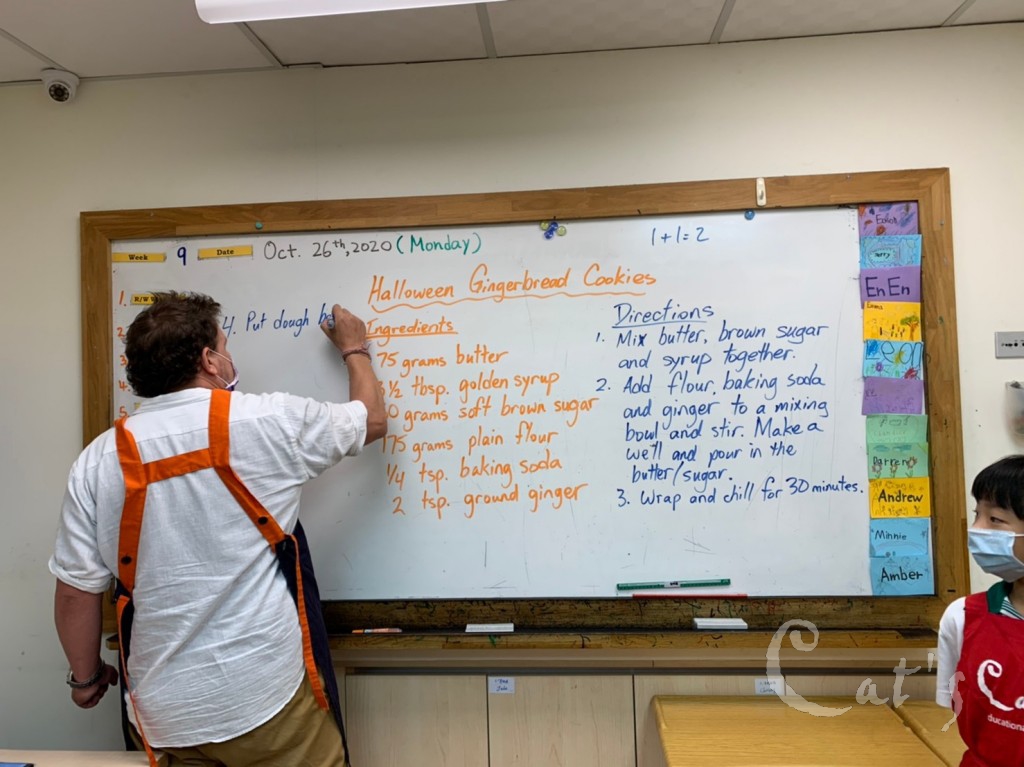 Week 9 Date Oct. 26th, 2020 (Monday)
1+1=2
Halloween Gingerbread Cookies
1.
4. Put dough
Ingredients
75 grams butter
½ tbsp. golden syrup
0 grams soft brown sugar
175 grams plain flour
¼ tsp. baking soda
2 tsp. ground ginger
Directions
1. Mix butter, brown sugar
and syrup together.
2. Add flour, baking soda
and ginger to a mixing
bowl and stir. Make a
well and pour in the
butter/sugar.
3. Wrap and chill for 30 minutes.
En En
Emma
Darren
Andrew
Minnie
Amber
Cat's
Ca
ducational